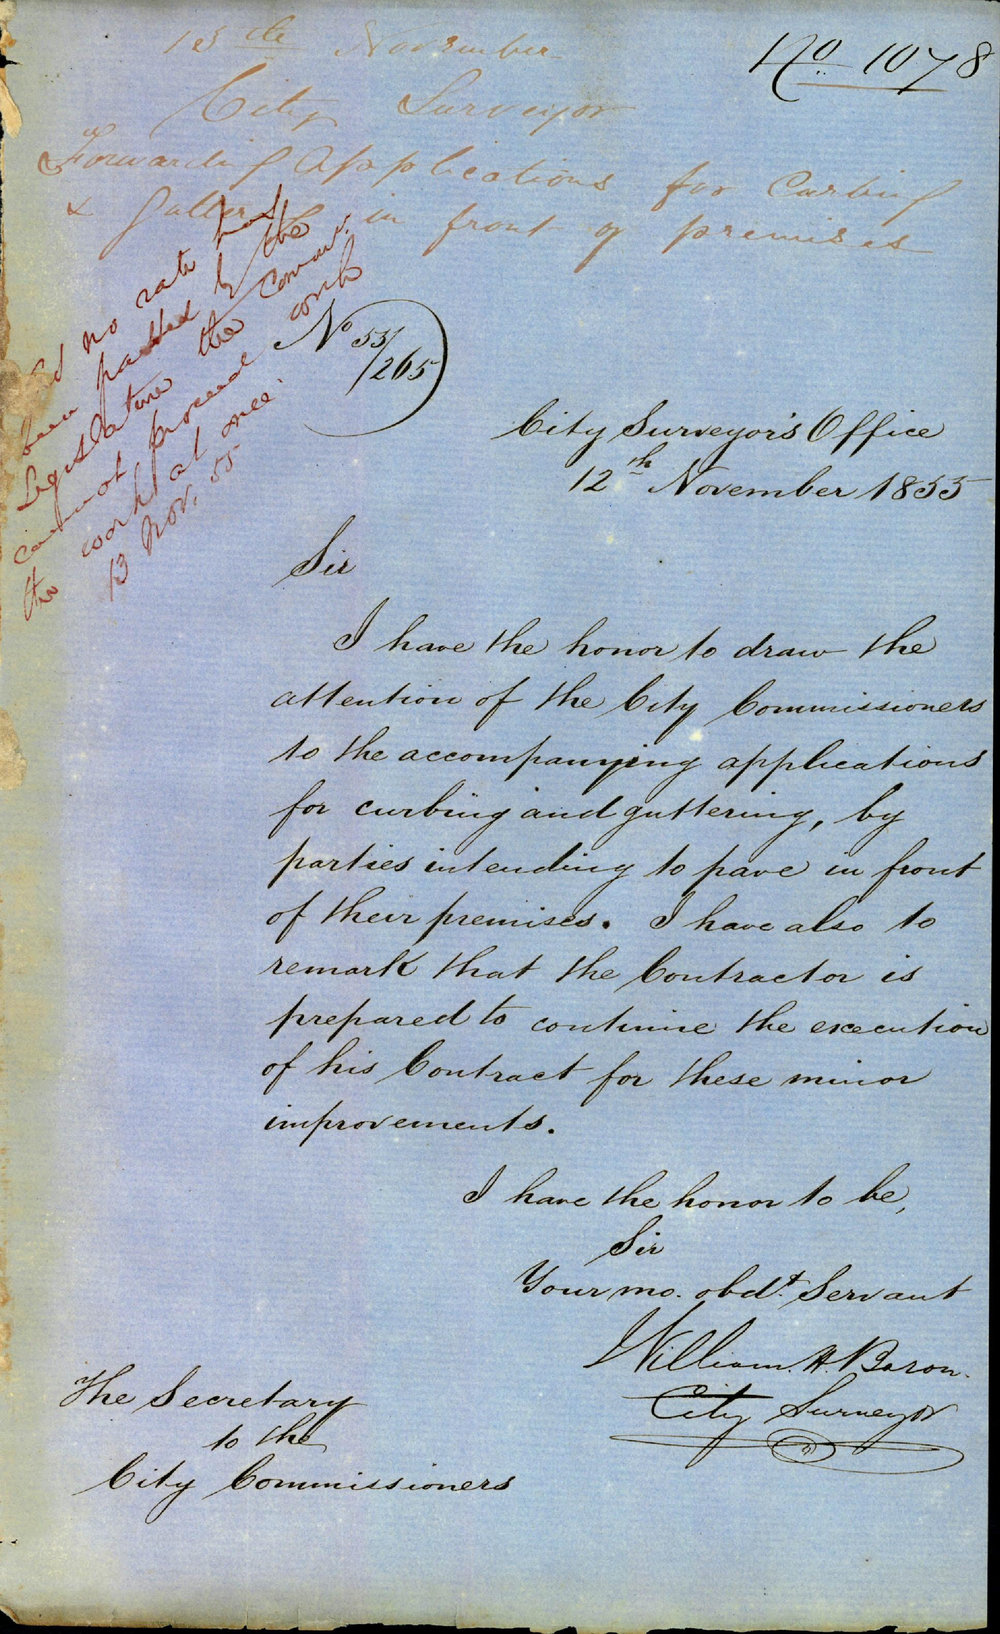 No 1078
13th November
City Surveyor
Forwarding Applications for Curbing
& Guttering in front of premises
no rate has
been passed by the
Legislature the Commrs.
cannot proceed with
the work at once.
13 Nov. 55
No 55/265
City Surveyor's Office
12th November 1855
Sir
I have the honor to draw the
attention of the City Commissioners
to the accompanying applications
for curbing and guttering, by
parties intending to pave in front
of their premises. I have also to
remark that the Contractor is
prepared to continue the execution
of his Contract for these minor
improvements.
I have the honor to be,
Sir
Your mo. obdt. Servant
William. H. Baron.
City Surveyor
The Secretary
to the
City Commissioners